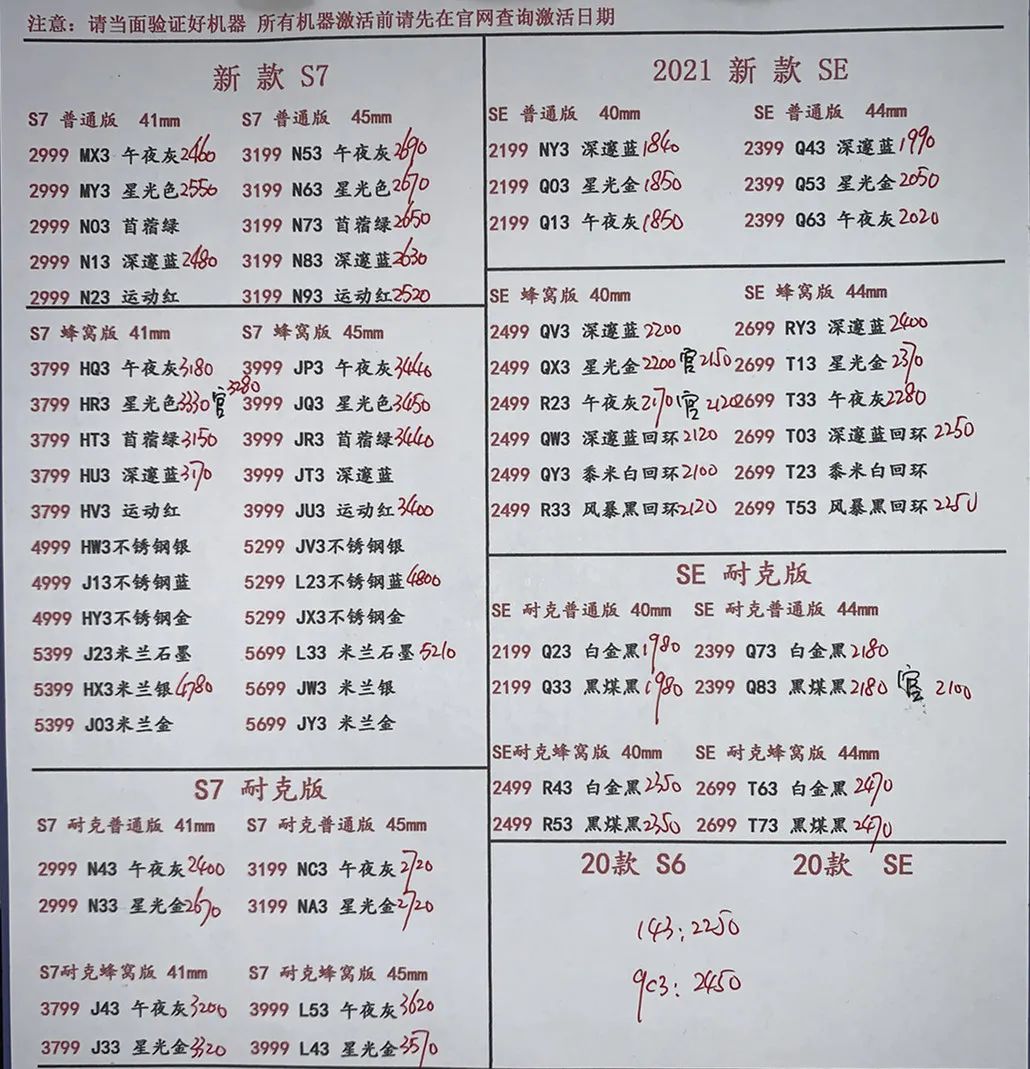 注意：请当面验证好机器 所有机器激活前请先在官网查询激活日期
新 款 S7
S7 普通版 41mm S7 普通版 45mm
2999 MX3 午夜灰2460 3199 N53 午夜灰2690
2999 MY3 星光色2550 3199 N63 星光色2670
2999 N03 苜蓿绿 3199 N73 苜蓿绿2650
2999 N13 深邃蓝2480 3199 N83 深邃蓝2630
2999 N23 运动红 3199 N93 运动红2520
S7 蜂窝版 41mm S7 蜂窝版 45mm
3799 HQ3 午夜灰3180 3999 JP3 午夜灰3440
3799 HR3 星光色3330官3280 3999 JQ3 星光色3450
3799 HT3 苜蓿绿3150 3999 JR3 苜蓿绿3440
3799 HU3 深邃蓝3170 3999 JT3 深邃蓝
3799 HV3 运动红 3999 JU3 运动红3400
4999 HW3不锈钢银 5299 JV3不锈钢银
4999 J13不锈钢蓝 5299 L23不锈钢蓝4800
4999 HY3不锈钢金 5299 JX3不锈钢金
5399 J23米兰石墨 5699 L33 米兰石墨5210
5399 HX3米兰银4780 5699 JW3 米兰银
5399 J03米兰金 5699 JY3 米兰金
S7 耐克版
S7 耐克普通版 41mm S7 耐克普通版 45mm
2999 N43 午夜灰2400 3199 NC3 午夜灰2720
2999 N33 星光金2670 3199 NA3 星光金2720
S7耐克蜂窝版 41mm S7 耐克蜂窝版 45mm
3799 J43 午夜灰3200 3999 L53 午夜灰3620
3799 J33 星光金3320 3999 L43 星光金3570
2021 新 款 SE
SE 普通版 40mm SE 普通版 44mm
2199 NY3 深邃蓝1840 2399 Q43 深邃蓝1990
2199 Q03 星光金1850 2399 Q53 星光金2050
2199 Q13 午夜灰1850 2399 Q63 午夜灰2020
SE 蜂窝版 40mm SE 蜂窝版 44mm
2499 QV3 深邃蓝2200 2699 RY3 深邃蓝2400
2499 QX3 星光金2200官2150 2699 T13 星光金2370
2499 R23 午夜灰2170官2120 2699 T33 午夜灰2280
2499 QW3 深邃蓝回环2120 2699 T03 深邃蓝回环2250
2499 QY3 黍米白回环2100 2699 T23 黍米白回环
2499 R33 风暴黑回环2120 2699 T53 风暴黑回环2250
SE 耐克版
SE 耐克普通版 40mm SE 耐克普通版 44mm
2199 Q23 白金黑1980 2399 Q73 白金黑2180
2199 Q33 黑煤黑1980 2399 Q83 黑煤黑2180 官 2100
SE耐克蜂窝版 40mm SE 耐克蜂窝版 44mm
2499 R43 白金黑2350 2699 T63 白金黑2470
2499 R53 黑煤黑2350 2699 T73 黑煤黑2470
20款 S6 20款 SE
143：2250
9C3：2450